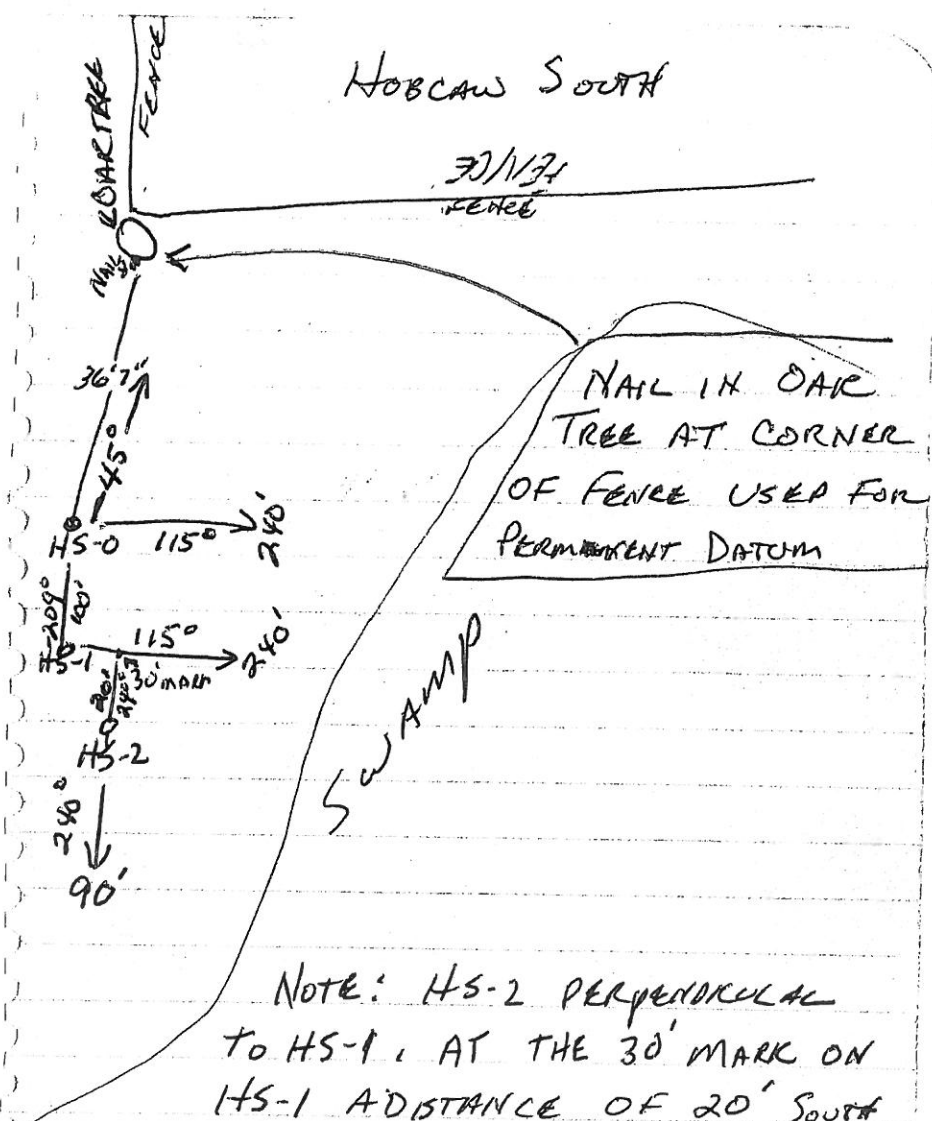 HOBCAW SOUTH
FENCE
FENCE
FENCE
NAIL
36'7"
45°
NAIL IN OAK
TREE AT CORNER
OF FENCE USED FOR
PERMENENT DATUM
HS-0 115° 240'
209° 100'
HS-1 115° 240'
30' MARK
20' 240°
HS-2
240°
90'
SWAMP
NOTE: HS-2 PERPENDICULAL
TO HS-1. AT THE 30' MARK ON
HS-1 A DISTANCE OF 20' SOUTH